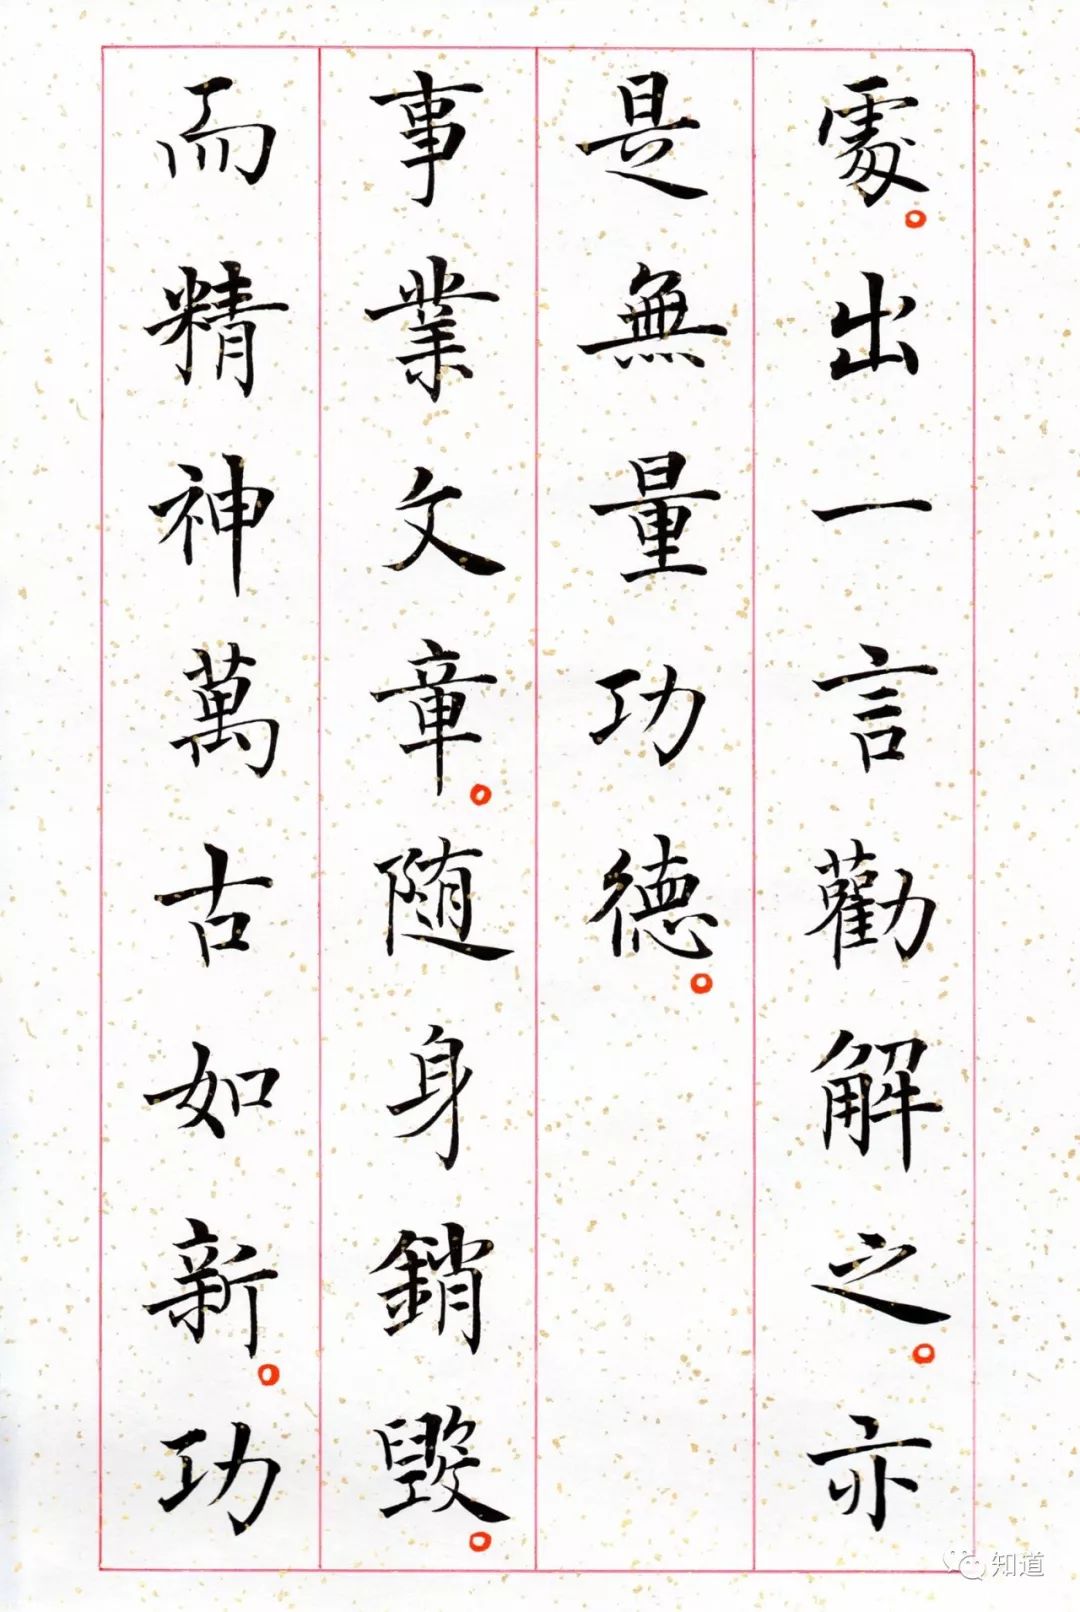 處。出一言勸解之。亦
是無量功德。
事業文章。随身銷毀。
而精神萬古如新。功
知道